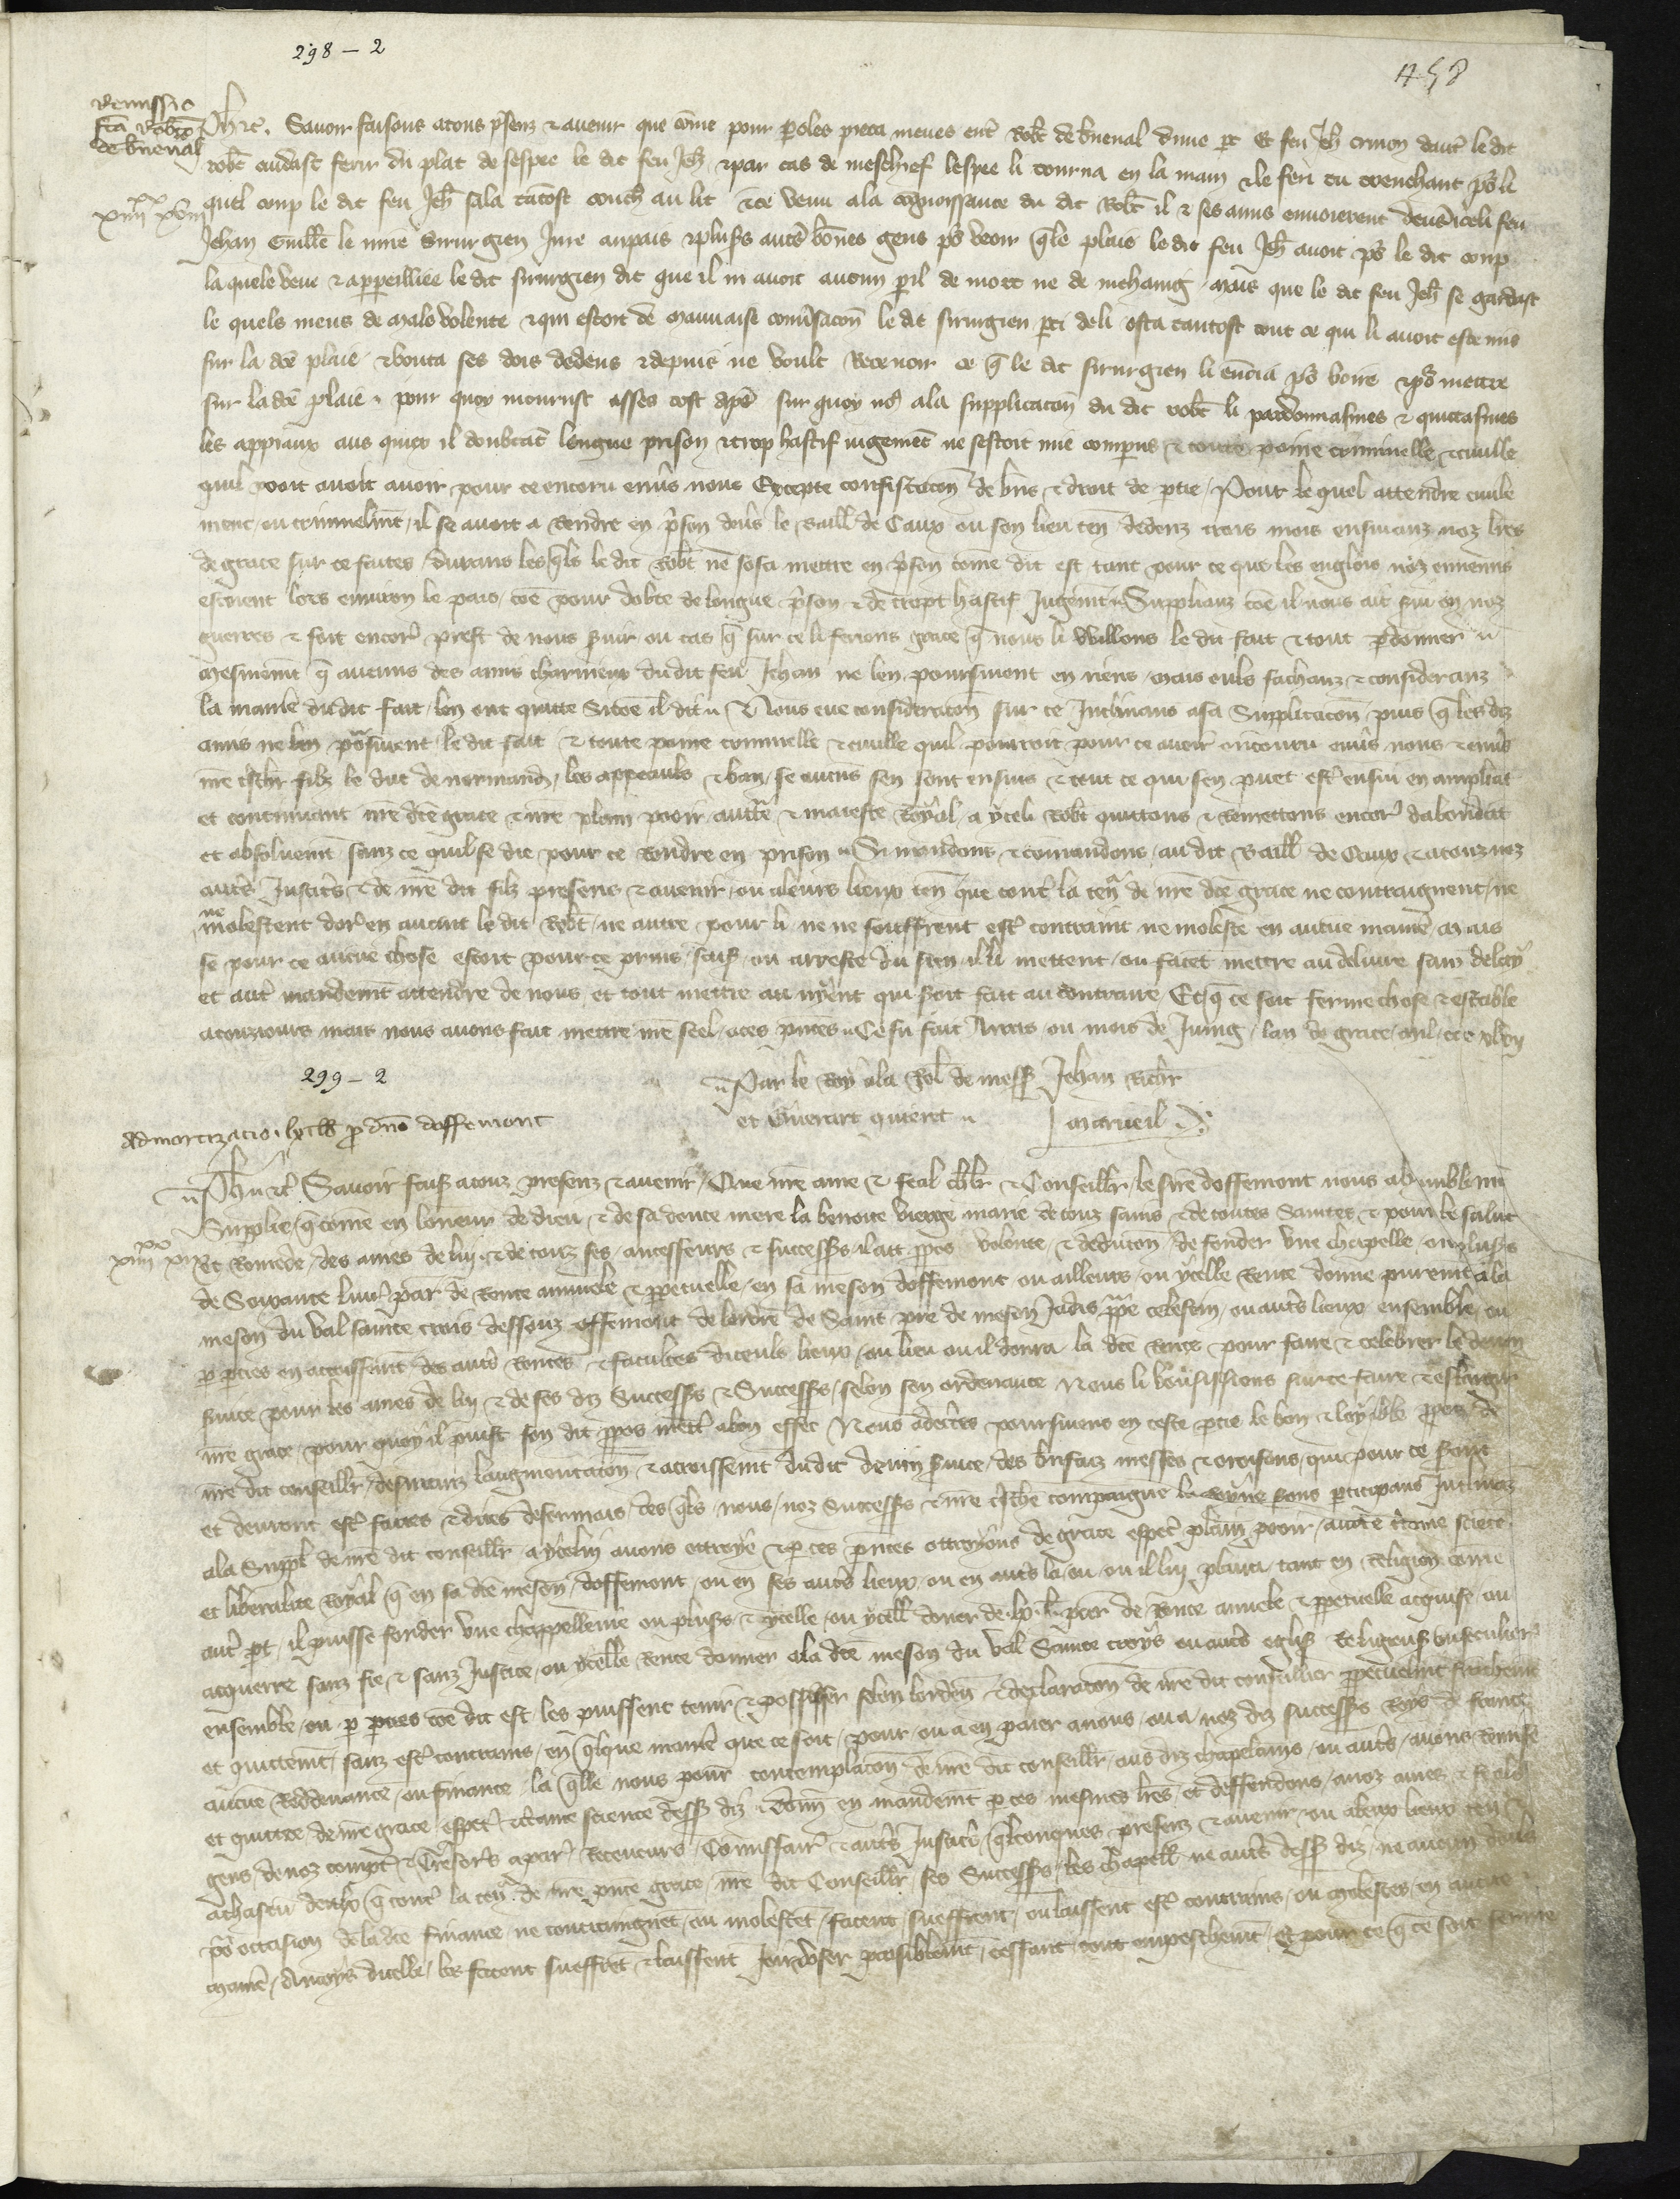 298 - 2
458
Remissio
fca Robto
de bueval
Ph etc. Savoir faisons a touz presenz et avenir que come pour paroles pieca meues entre Robt de bueval dune part Et feu Jeh dautre le dit
robt cuidast ferir du plat de sespee le dit feu Jeh et par cas de meschief lespee li tourna en la main et le feri du trenchant pour li
quel coup le dit feu Jeh sala tantost couch au lit et ce venu a la cognoissance du dit Robt il et ses amis envoierent devers iceli feu
Jehan Guille le mire Sirurgien Jure au pais et plus autres bones gens pour veoir quele plaie le dit feu Jeh avoit pour le dit coup
la quele veue et apperilliee le dit sirurgien dit que il ni avoit aucun peril de mort ne de mehaing mais que le dit feu Jeh se gardast
le quels meus de male volente et qui estoit de mauvaise conversacon le dit sirurgien parti de li osta tantost tout ce qui li avoit este mis
sur la dce plaie et bouta ses dois dedens et depuis ne voult recevoir ce que le dit sirurgien li envoia pour boire et pour mettre
sur la dce plaie pour quoy mourust asses tost apres sur quoy nous a la supplicacon du dit robt li pardonnasmes et quittasmes
les appiaux aus quiex il doubtant longue prison et trop hastif jugement ne sestoit mie comparus et toute poine criminelle et civille
quil pooit avoir pour ce encoru envers nous Excepte confiscacon de biens et droit de partie Pour le quel attendre civile
ment ou criminelment il se avoit a rendre en prison devers le Baill de Caux ou son lieu ten dedenz trois mois ensuivanz noz lres
de grace sur ce faites durans lesquels le dit Robt ne sosa mettre en prison come dit est tant pour ce que les englois noz ennemis
estoient lors environ le pais come pour doubte de longue prison et de tropt hastif Jugement Suppliant come il nous ait servi en noz
guerres et soit encores prest de nous servir ou cas que sur ce li ferions grace que nous li vuillons le dit fait et tout pardonner
mesmement que aucuns des amis charniex du dit feu Jehan ne len poursuivent en riens mais euls sachanz et consideranz
la maniere du dit fait len ont quitte Si come il dit Nous eue consideracon sur ce Inclinans a sa Supplicacon puis que les diz
amis ne len poursuivent le dit fait et toute paine criminelle et civille quil pourroit pour ce avoir encouru envers nous et envers
nre tschr filz le duc de normand les appeaulx et ban se aucuns sen sont ensuis et tout ce qui sen puet estre ensui en ampliant
et continuant nre dce grace et nre plain pooir auctte et maieste Royal a yceli Robt quittons et remettons encores dabondant
et absoluement sanz ce quil se die pour ce rendre en prison Si mandons et comandons au dit Baill de Caux et a touz noz
autres Justices et de nre dit filz presens et avenir ou a leurs lieux ten que contre la teneur de nre dce grace ne contraignent ne
ne molestent dores en avant le dit Robt ne autre pour li ne ne souffrent estre contraint ne moleste en aucune maniere Mais
se pour ce aucune chose estoit pour ce prins saisi ou arreste du sien il li mettent ou facent mettre au delivre sanz delay
et autre mandement attendre de nous et tout mettre au nyent qui seroit fait au contraire Et que ce soit ferme chose et estable
a touz jours mais nous avons fait mettre nre seel a ces presentes Ce fu fait Arras ou mois de Juing lan de grace mil ccc xlvij
Par le Roy a la Rel de mess Jehan Richr
et Guerart quieret
marueil
299 - 2
Admortizacio lx lb p dno doffemont
Ph etc Savoir fais a touz presenz et avenir Que nre ame et feal chlr et Conseillr le sire doffemont nous a humblement
Supplie que come en loneur de dieu et de sa douce mere la benoite vierge marie de touz sains et de toutes Saintes et pour le salut
Et remede des ames de lui et de touz ses ancesseurs et successrs il att propos volente et devocon de fonder une chapelle ou pluss
de Soixante livres par de rente annuele et perpetuelle en sa meson doffemont ou ailleurs ou ycelle rente donne purement a la
meson du val sainte crois dessouz offemont de lordre de Saint pre de meson Jadis pape celestin ou autres lieux ensemble ou
par parties en accroissant des autres rentes et facultes diceuls lieux ou lieu ou il donra la dce rente pour faire et celebrer le divin
service pour les ames de lui et de ses diz Successrs et Successrs selon son ordenance Nous li vousissions sur ce faire et eslargir
nre grace pour quoy il puist son dit propos mettre a bon effet Nous adecertes poursuivens en ceste partie le bon et loyable propos de
nre dit conseillr desiranz laugmentacon et accroissement du dit devin service des bienfaiz messes et oroisons qui pour ce seront
et devront estre faites et dites desormais des quels nous noz Successrs et nre tsche compaigne la Royne sons participans Inclinanz
a la Suppl de nre dit conseillr a ycelui avons ottroye et par ces presentes ottroyons de grace especl plain pooir auctte certaine science
et liberalite Royal que en sa dce meson doffemont ou en ses autres lieux ou en autres la ou ou il lui plaira tant en Religion come
autre part il puisse fonder une chappellenie ou plus et ycelle ou ycelles doner de lx l par de rente annuele et perpetuelle acquise ou
acquerre sanz fie et sanz Justice ou ycelle rente donner a la dce meson du val Sainte croys ou autres eglises
ensemble ou par parties come dit est les puissent tenir et possider selon lorden et declaracon de nre dit conseillier perpetuelment franchement
et quittement sanz estre contrains en quelque maniere que ce soit pour ou a en paier a nous ou a noz diz successrs Roys de france
aucune Reddevance ou finance la quelle nous pour contemplacon de nre dit conseillr aus diz chapelains ou autres avons remise
et quittee de nre grace especl et certaine science dess diz Donn en mandement par ces mesmes lres et deffendons a noz amez et feals
gens de noz comptes et Tresoriers a paris Receveurs Comissaires et autres Justiciers quelconques presenz et avenir ou a leurs lieux ten
a chascun deulx que contre la teneur de nre pnte grace nre dit Conseillr ses Successrs les chapell ne autres dess diz ne aucun deuls
pour occasion de la dce finance ne contraingnet ou molestet facent sueffrent ou laissent estre contrains ou molestes en aucune
maniere Ancoys dicelle les facent sueffret et laissent Jouir et user paisiblement cessant tout empeschement Et pour ce que ce soit ferme